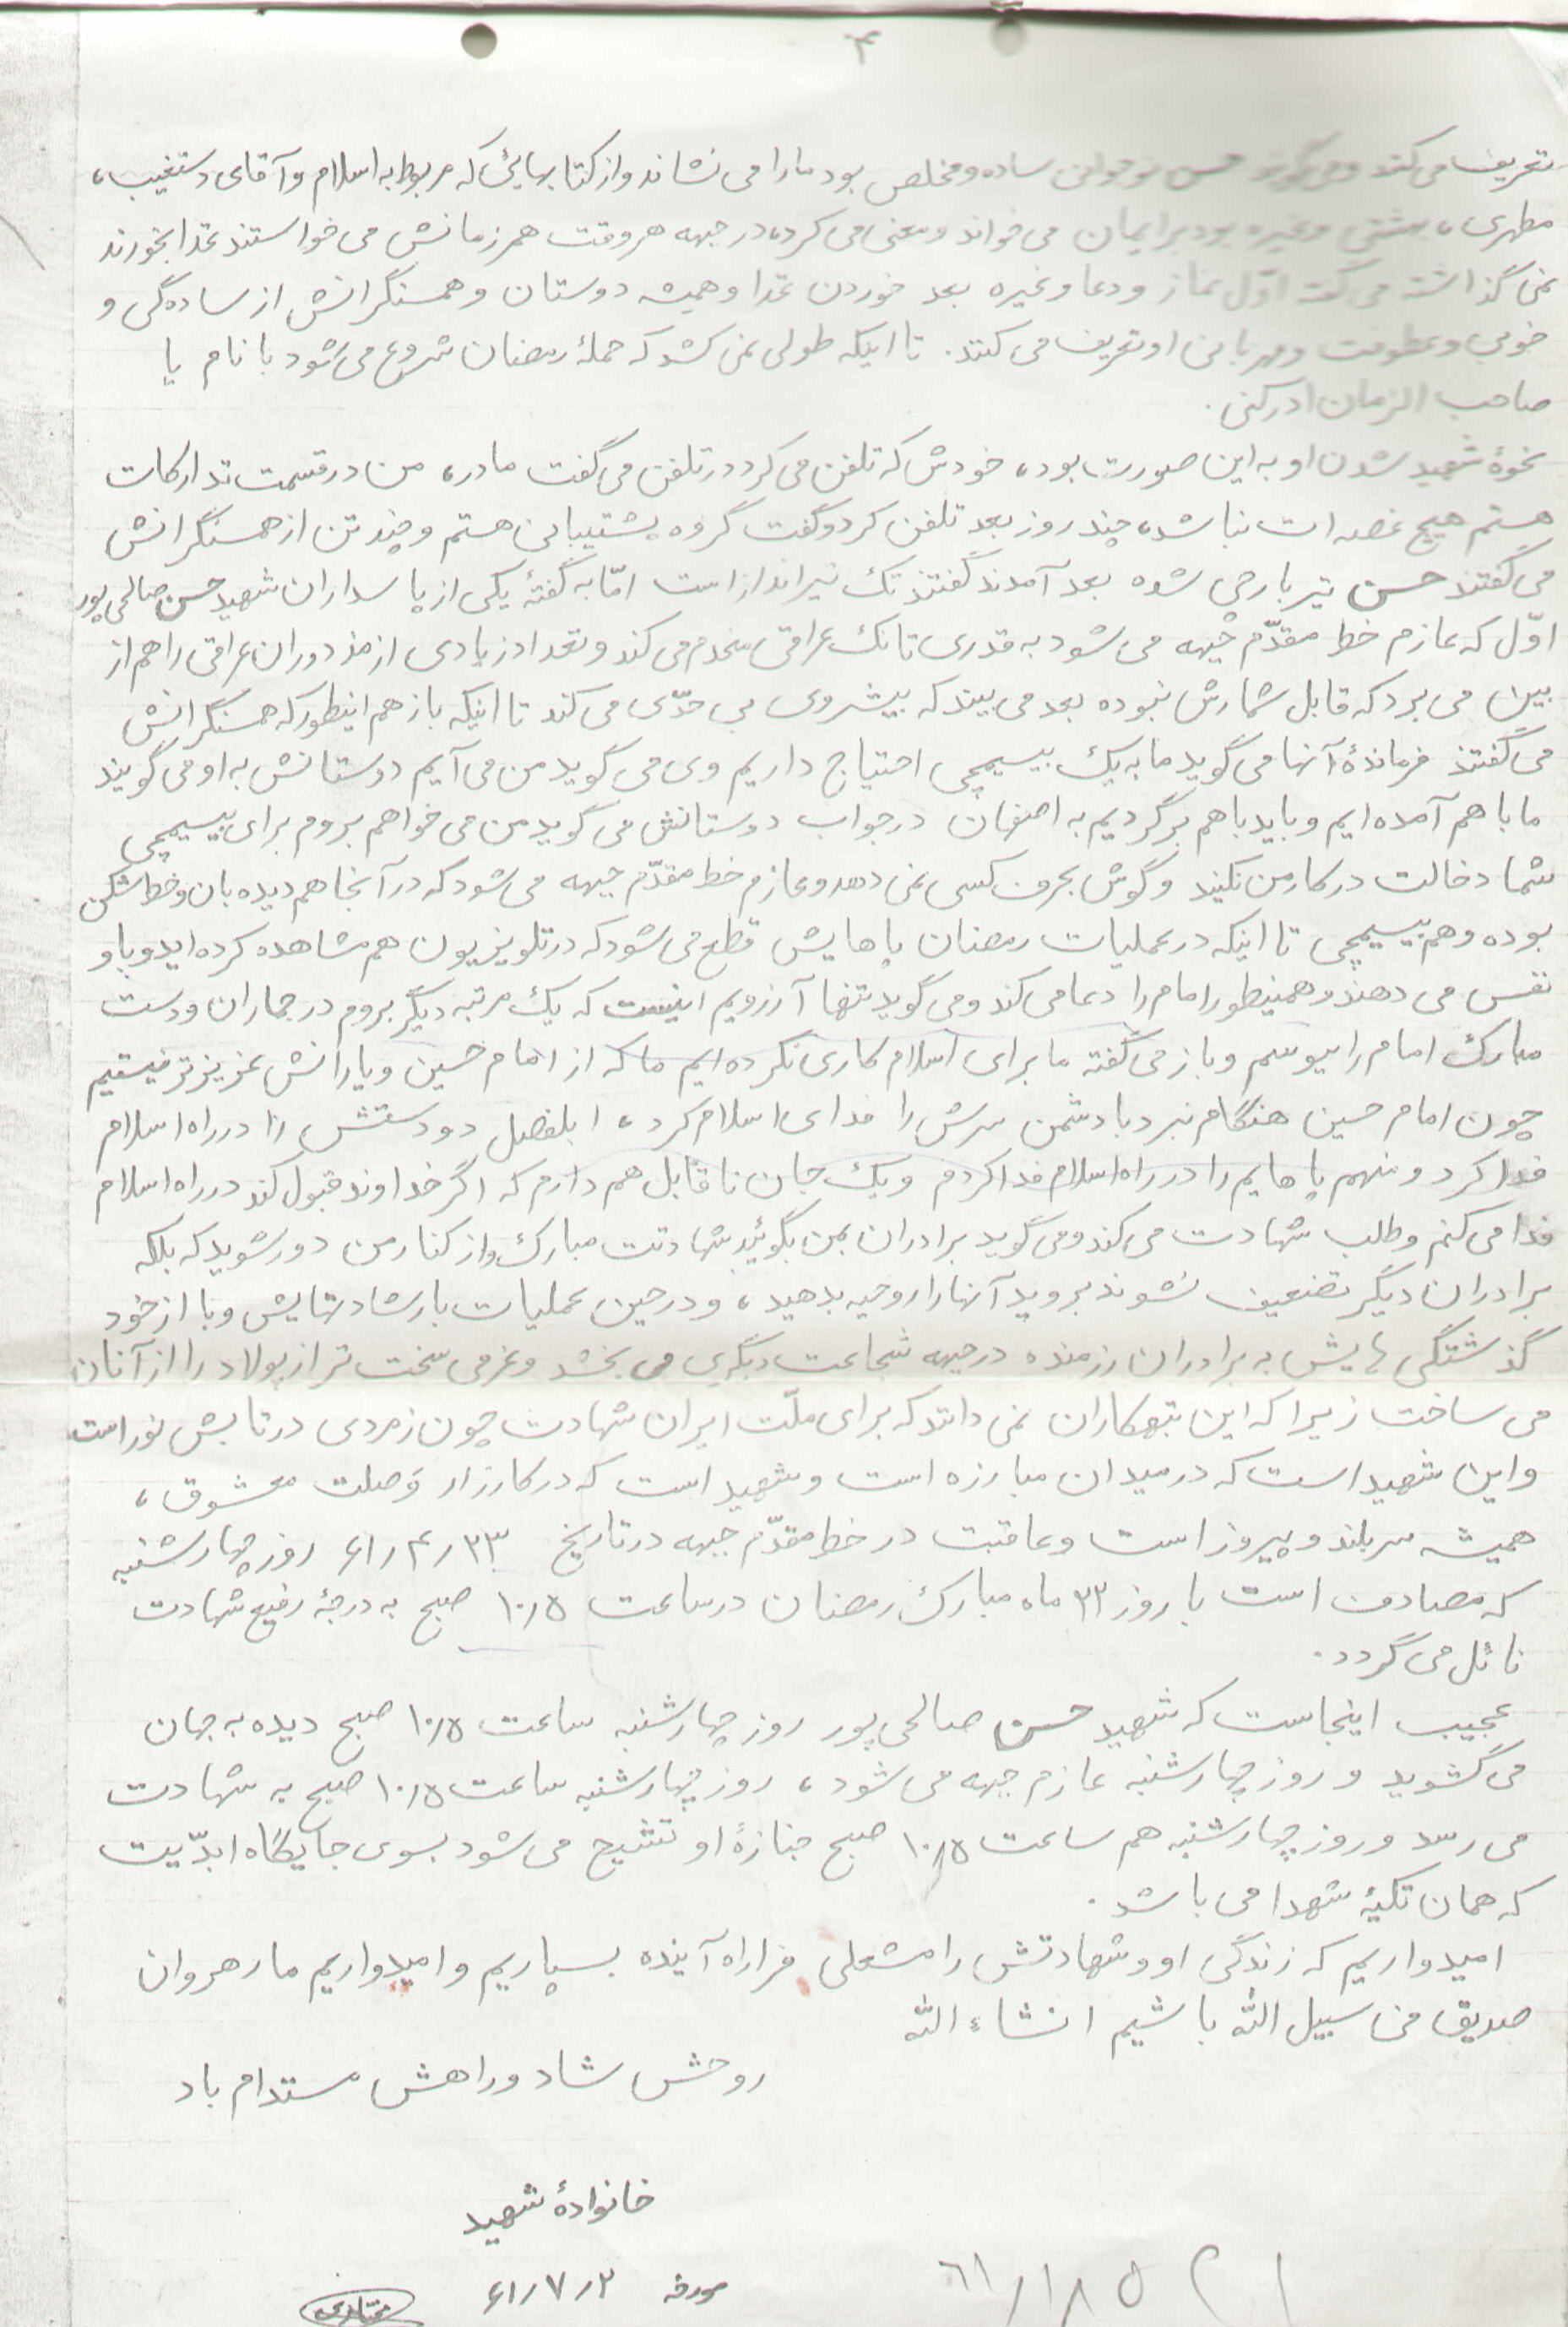 ۴
تعریف می کنند و می گویند حسن نوجوانی ساده و مخلص بود ما را می نشاند و از کتابهایی که مربوط به اسلام و آقای دستغیب،
مطهری، بهشتی و غیره بود برایمان می خواند و معنی می کرد، در جبهه هر وقت همرزمانش می خواستند غذا بخورند
نمی گذاشته می گفته اوّل نماز و دعا و غیره بعد خوردن غذا و همیشه دوستان و همسنگرانش از سادگی و
خوبی و عطوفت و مهربانی او تعریف می کنند. تا اینکه طولی نمی کشد که حملهٔ رمضان شروع می شود با نام یا
صاحب الزمان ادرکنی.
نحوهٔ شهید شدن او به این صورت بود، خودش که تلفن می کرد در تلفن می گفت مادر، من در قسمت تدارکات
هستم هیچ غصه ات نباشد، چند روز بعد تلفن کرد و گفت گروه پشتیبانی هستم و چند تن از همسنگرانش
می گفتند حسن تیربارچی شده بعد آمدند گفتند تک تیرانداز است امّا به گفتهٔ یکی از پاسداران شهید حسن صالحی پور
اوّل که عازم خط مقدّم جبهه می شود به قدری تانک عراقی منهدم می کند و تعداد زیادی از مزدوران عراقی را هم از
بین می برد که قابل شمارش نبوده بعد می بیند که پیشروی بی حدّی می کند تا اینکه باز هم اینطور که همسنگرانش
می گفتند فرماندهٔ آنها می گوید ما به یک بیسیمچی احتیاج داریم وی می گوید من می آیم دوستانش به او می گویند
ما با هم آمده ایم و باید با هم برگردیم به اصفهان در جواب دوستانش می گوید من می خواهم بروم برای بیسیمچی
شما دخالت در کار من نکنید و گوش بحرف کسی نمی دهد و عازم خط مقدّم جبهه می شود که در آنجا هم دیده بان و خط شکن
بوده و هم بیسیمچی تا اینکه در عملیات رمضان پاهایش قطع می شود که در تلویزیون هم مشاهده کرده اید و باو
نفس می دهند و همینطور امام را دعا می کند و می گوید تنها آرزویم اینست که یک مرتبه دیگر بروم در جماران و دست
مبارک امام را ببوسم و باز می گفته ما برای اسلام کاری نکرده ایم ما که از امام حسین و یارانش عزیزتر نیستیم
چون امام حسین هنگام نبرد با دشمن سرش را فدای اسلام کرد، ابلفضل دو دستش را در راه اسلام
فدا کرد و منهم پاهایم را در راه اسلام فدا کردم و یک جان ناقابل هم دارم که اگر خداوند قبول کند در راه اسلام
فدا می کنم و طلب شهادت می کند و می گوید برادران بمن بگوئید شهادتت مبارک و از کنار من دور شوید که بلکه
برادران دیگر تضعیف نشوند بروید آنها را روحیه بدهید، و در حین عملیات با رشادتهایش و با از خود
گذشتگی هایش به برادران رزمنده در جبهه شجاعت دیگری می بخشد و عزمی سخت تر از پولاد را از آنان
می ساخت زیرا که این تبهکاران نمی دانند که برای ملّت ایران شهادت چون زمردی در تابش نور است
و این شهید است که در میدان مبارزه است و شهید است که در کارزار وَصلت معشوق،
همیشه سربلند و پیروز است و عاقبت در خط مقدّم جبهه در تاریخ ۶۱/۴/۲۳ روز چهارشنبه
که مصادف است با روز ۲۲ ماه مبارک رمضان در ساعت ۱۰/۵ صبح به درجهٔ رفیع شهادت
نائل می گردد.
عجیب اینجاست که شهید حسن صالحی پور روز چهارشنبه ساعت ۱۰/۵ صبح دیده به جهان
می گشوید و روز چهارشنبه عازم جبهه می شود، روز چهارشنبه ساعت ۱۰/۵ صبح به شهادت
می رسد و روز چهارشنبه هم ساعت ۱۰/۵ صبح جنازهٔ او تشییع می شود بسوی جایگاه ابدّیت
که همان تکیهٔ شهدا می باشد.
امیدواریم که زندگی او و شهادتش را مشعلی فرا راه آینده بسپاریم و امیدواریم ما رهروان
صدیق فی سبیل الله باشیم انشاءالله
روحش شاد و راهش مستدام باد
خانوادهٔ شهید
مورخه ۶۱/۷/۲